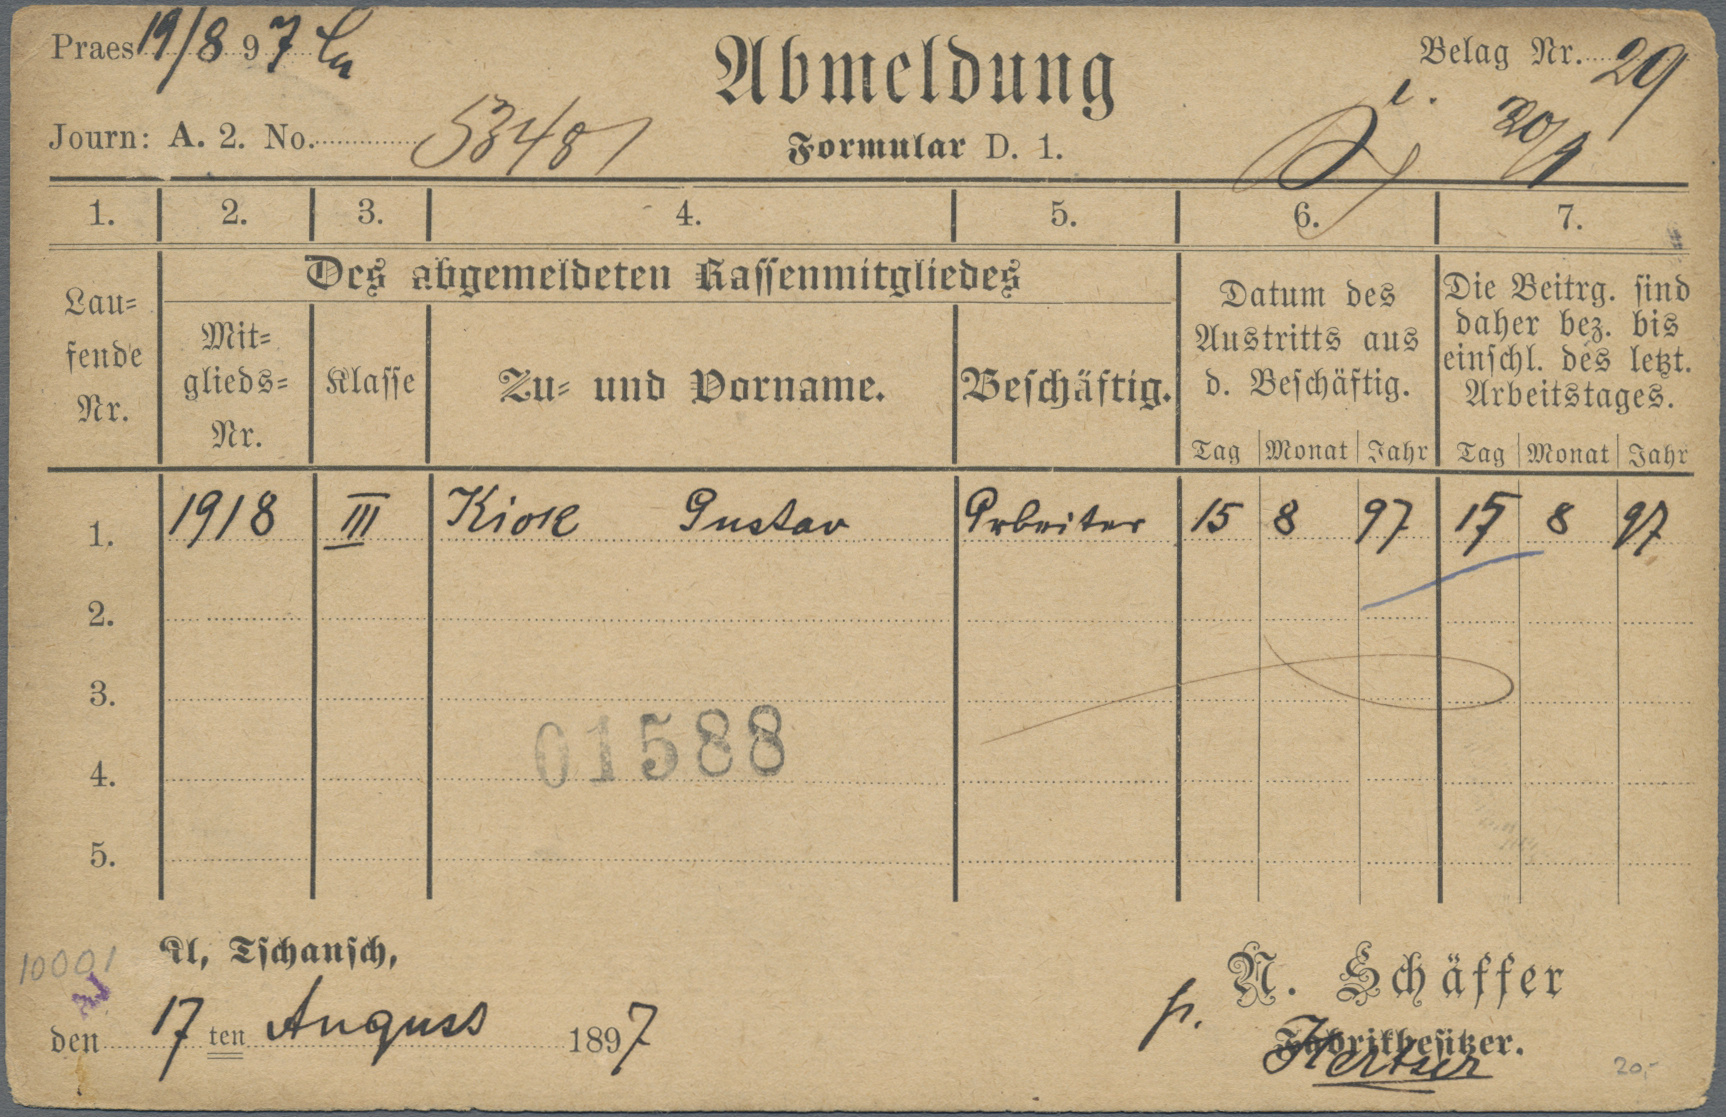 Praes 19/8 97
Abmeldung
Belag Nr. 29
Journ: A. 2. No. 53481
Formular D. 1.
20/9
1. 2. 3. 4. 5. 6. 7.
Des abgemeldeten Kassenmitgliedes
Lau-
fende
Nr.
Mit-
glieds-
Nr.
Klasse
Zu- und Vorname.
Beschäftig.
Datum des
Austritts aus
d. Beschäftig.
Tag Monat Jahr
Die Beitrg. sind
daher bez. bis
einschl. des letzt.
Arbeitstages.
Tag Monat Jahr
1. 1918 III Kiok Gustav Arbeiter 15 8 97 15 8 97
2.
3.
01588
4.
5.
10001
Kl, Tschansch,
den 17 ten August 1897
N. Schäffer
Fabrikbesitzer.
20,-